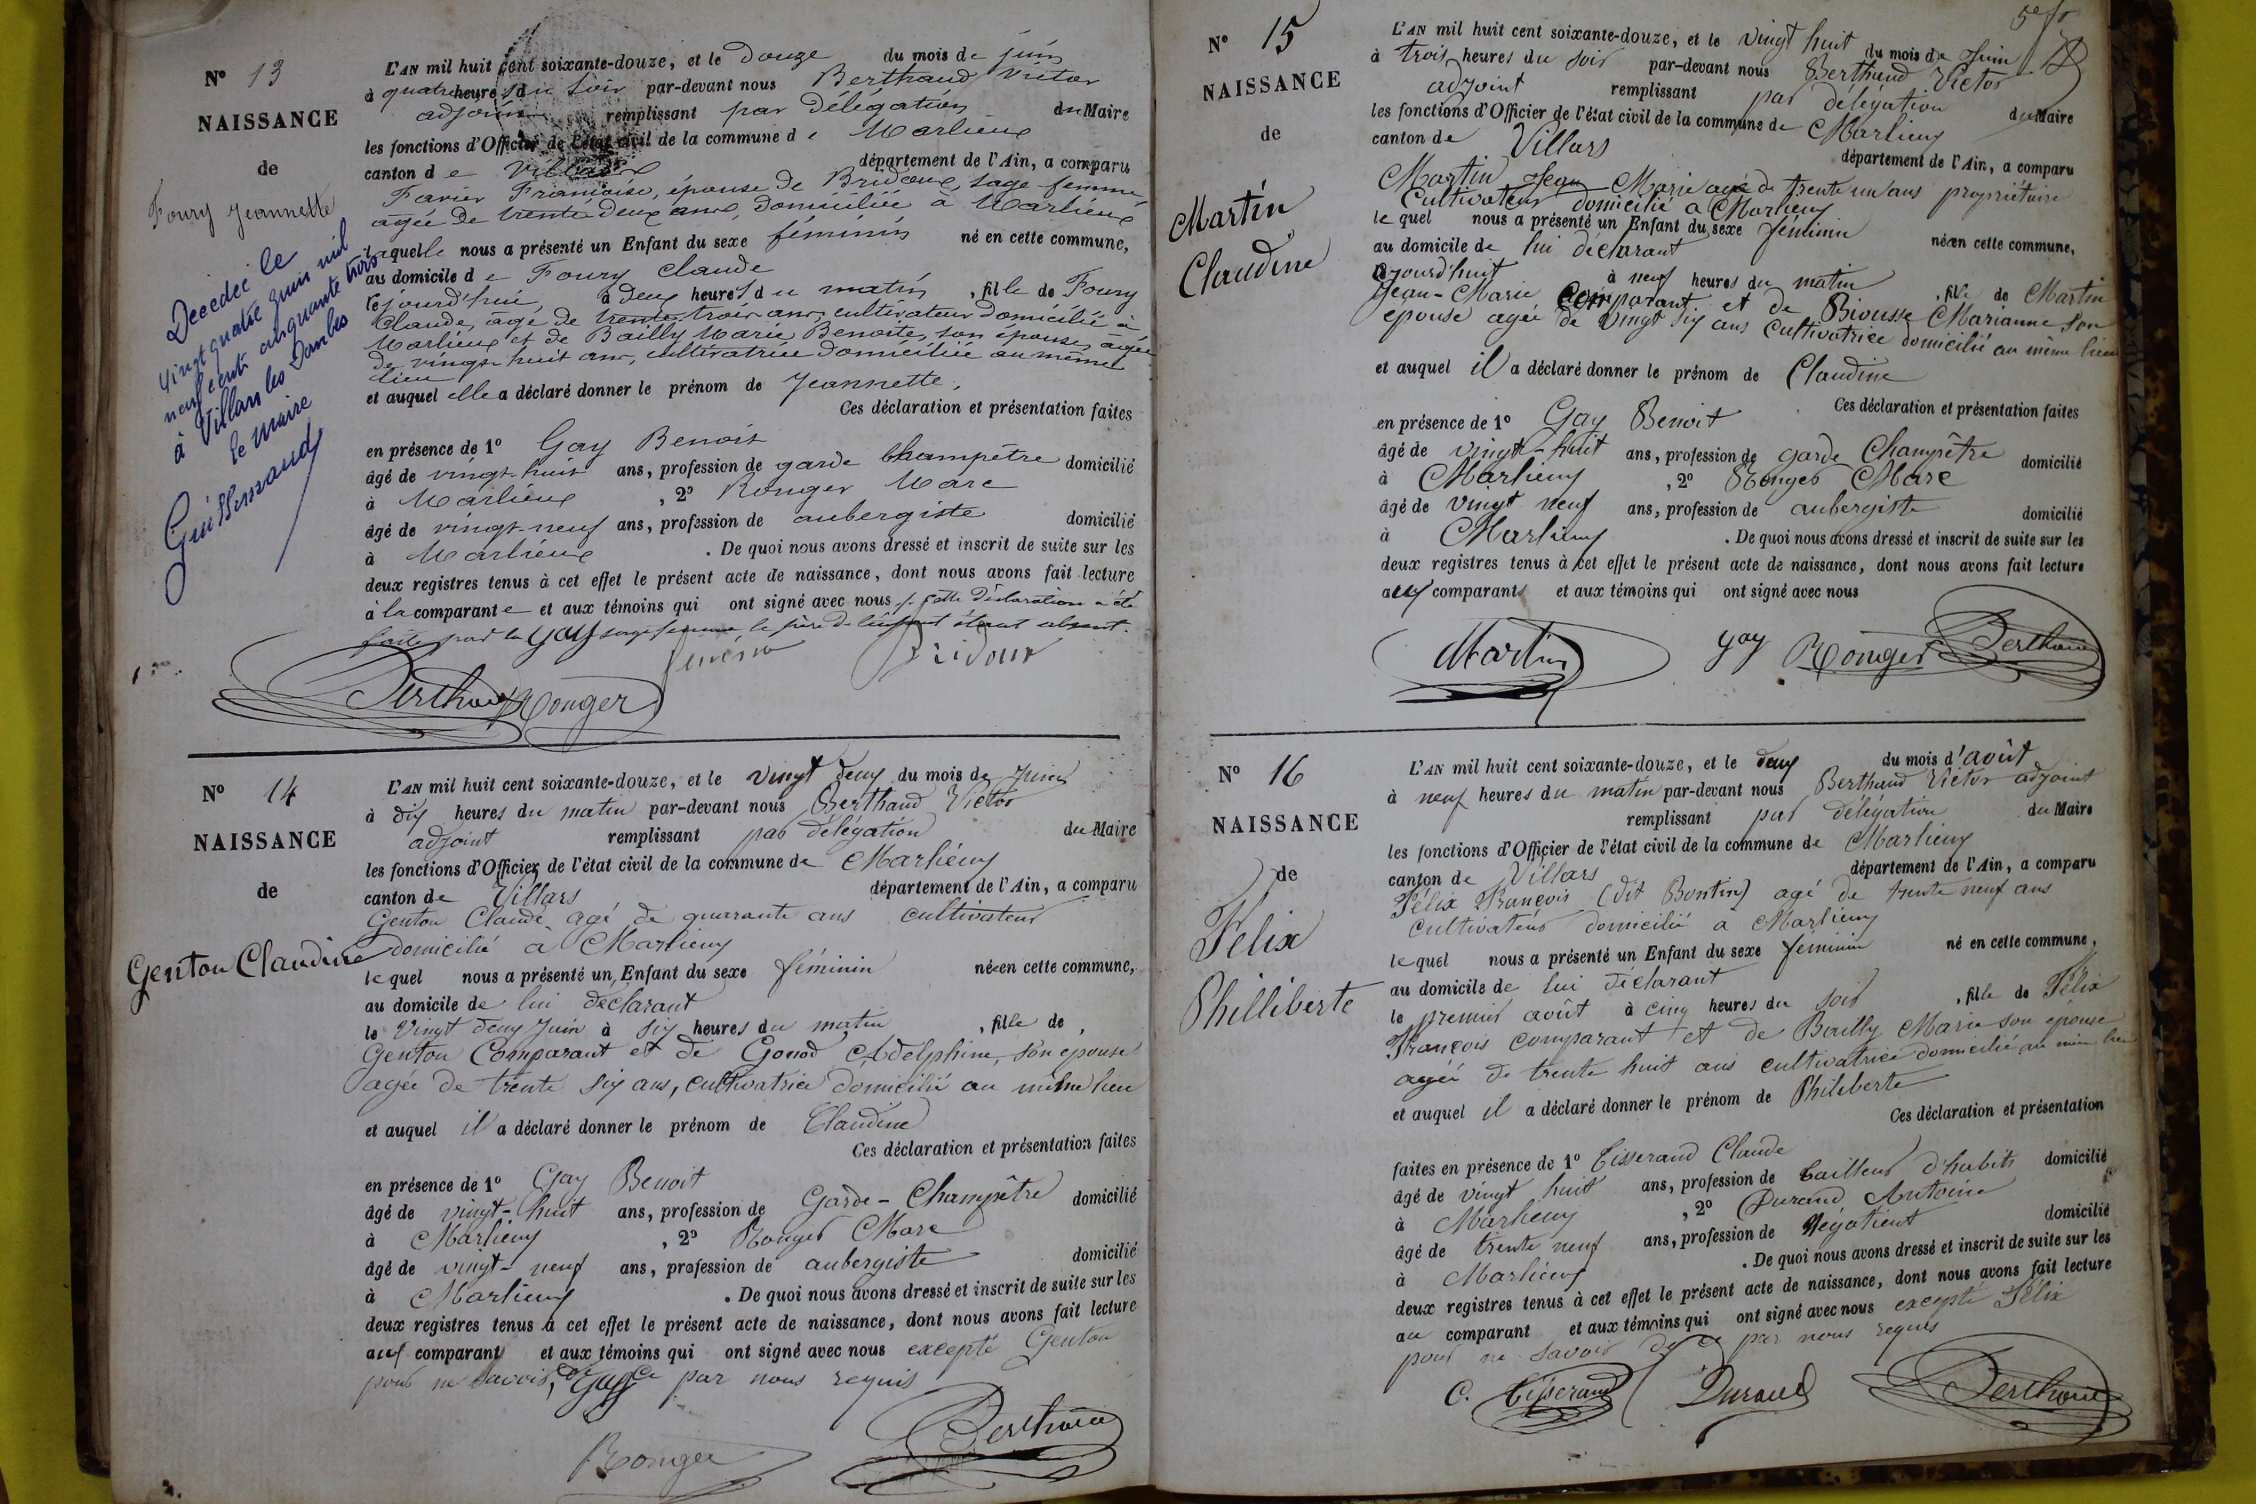 N° 13
NAISSANCE
de
Foury Jeannette
Decedée le
vingt quatre Juin mil
neuf cent cinquante trois
à Villars les Dombes
le Maire
Guillemaud
L'AN mil huit cent soixante-douze, et le Douze du mois de juin
à quatre heures du soir par-devant nous Berthaud Victor
adjoint remplissant par Délégation du Maire
les fonctions d'Officier de l'état civil de la commune de Marlieux
canton de Villars département de l'Ain, a comparu
Favier Françoise, épouse de Bridoux, sage femme
agée de trente deux ans, domiciliée à Marlieux
laquelle nous a présenté un Enfant du sexe féminin né en cette commune,
au domicile de Foury Claude
cejourd'hui, à deux heures du matin, fille de Foury
Claude, âgé de trente-trois ans, cultivateur domicilié à
Marlieux et de Bailly Marie Benoite, son épouse, agée
de vingt-huit ans, cultivatrice domiciliée au même
lieu
et auquel elle a déclaré donner le prénom de Jeannette,
Ces déclaration et présentation faites
en présence de 1° Gay Benoit
âgé de vingt-huit ans, profession de garde champêtre domicilié
à Marlieux, 2° Ronger Marc
âgé de vingt-neuf ans, profession de aubergiste domicilié
à Marlieux. De quoi nous avons dressé et inscrit de suite sur les
deux registres tenus à cet effet le présent acte de naissance, dont nous avons fait lecture
à la comparante et aux témoins qui ont signé avec nous cette Déclaration a été
faite par la sage femme le père de l'enfant étant absent.
Gay
Bridoux
Berthaud Ronger
N° 14
NAISSANCE
de
Genton Claudine
L'AN mil huit cent soixante-douze, et le vingt deux du mois de Juin
à dix heures du matin par-devant nous Berthaud Victor
adjoint remplissant par délégation du Maire
les fonctions d'Officier de l'état civil de la commune de Marlieux
canton de Villars département de l'Ain, a comparu
Genton Claude agé de quarante ans cultivateur
domicilié à Marlieux
lequel nous a présenté un Enfant du sexe féminin né en cette commune,
au domicile de lui déclarant
le Vingt deux Juin à six heures du matin, fille de,
Genton Comparant et de Gonod Adelphine, son épouse
agée de trente six ans, cultivatrice domicilié au même lieu
et auquel il a déclaré donner le prénom de Claudine
Ces déclaration et présentation faites
en présence de 1° Gay Benoit
âgé de vingt-huit ans, profession de Garde-Champêtre domicilié
à Marlieux, 2° Ronger Marc
âgé de vingt-neuf ans, profession de aubergiste domicilié
à Marlieux. De quoi nous avons dressé et inscrit de suite sur les
deux registres tenus à cet effet le présent acte de naissance, dont nous avons fait lecture
aux comparants et aux témoins qui ont signé avec nous excepté Genton
pour ne savoir, de ce par nous requis
Gay
Ronger Berthaud
N° 15
NAISSANCE
de
Martin
Claudine
L'AN mil huit cent soixante-douze, et le vingt huit du mois de Juin
à trois heures du soir par-devant nous Berthaud Victor
adjoint remplissant par délégation du Maire
les fonctions d'Officier de l'état civil de la commune de Marlieux
canton de Villars département de l'Ain, a comparu
Martin Jean Marie agé de trente un ans propriétaire
Cultivateur domicilié à Marlieux
lequel nous a présenté un Enfant du sexe féminin né en cette commune,
au domicile de lui déclarant
cejourd'huit à neuf heures du matin, fille de Martin
Jean-Marie Comparant et de Biousse Marianne son
épouse agée de vingt six ans cultivatrice domicilié au même lieu
et auquel il a déclaré donner le prénom de Claudine
Ces déclaration et présentation faites
en présence de 1° Gay Benoit
âgé de vingt-huit ans, profession de garde Champêtre domicilié
à Marlieux, 2° Ronger Marc
âgé de vingt neuf ans, profession de aubergiste domicilié
à Marlieux. De quoi nous avons dressé et inscrit de suite sur les
deux registres tenus à cet effet le présent acte de naissance, dont nous avons fait lecture
aux comparants et aux témoins qui ont signé avec nous
Martin Gay Ronger Berthaud
N° 16
NAISSANCE
de
Félix
Philliberte
L'AN mil huit cent soixante-douze, et le deux du mois d'août
à neuf heures du matin par-devant nous Berthaud Victor adjoint
remplissant par délégation du Maire
les fonctions d'Officier de l'état civil de la commune de Marlieux
canton de Villars département de l'Ain, a comparu
Félix François (dit Bontin) agé de trente neuf ans
cultivateur domicilié à Marlieux
lequel nous a présenté un Enfant du sexe féminin né en cette commune,
au domicile de lui déclarant
le premier août à cinq heures du soir, fille de Félix
François comparant et de Bailly Marie son épouse
agée de trente huit ans cultivatrice domicilié au même lieu
et auquel il a déclaré donner le prénom de Philiberte
Ces déclaration et présentation
faites en présence de 1° Tisserand Claude
âgé de vingt huit ans, profession de tailleur d'habits domicilié
à Marlieux, 2° Durand Antoine
âgé de trente neuf ans, profession de Négotient domicilié
à Marlieux. De quoi nous avons dressé et inscrit de suite sur les
deux registres tenus à cet effet le présent acte de naissance, dont nous avons fait lecture
au comparant et aux témoins qui ont signé avec nous excepté Félix
pour ne savoir de ce par nous requis
C. Tisserand Durand Berthaud